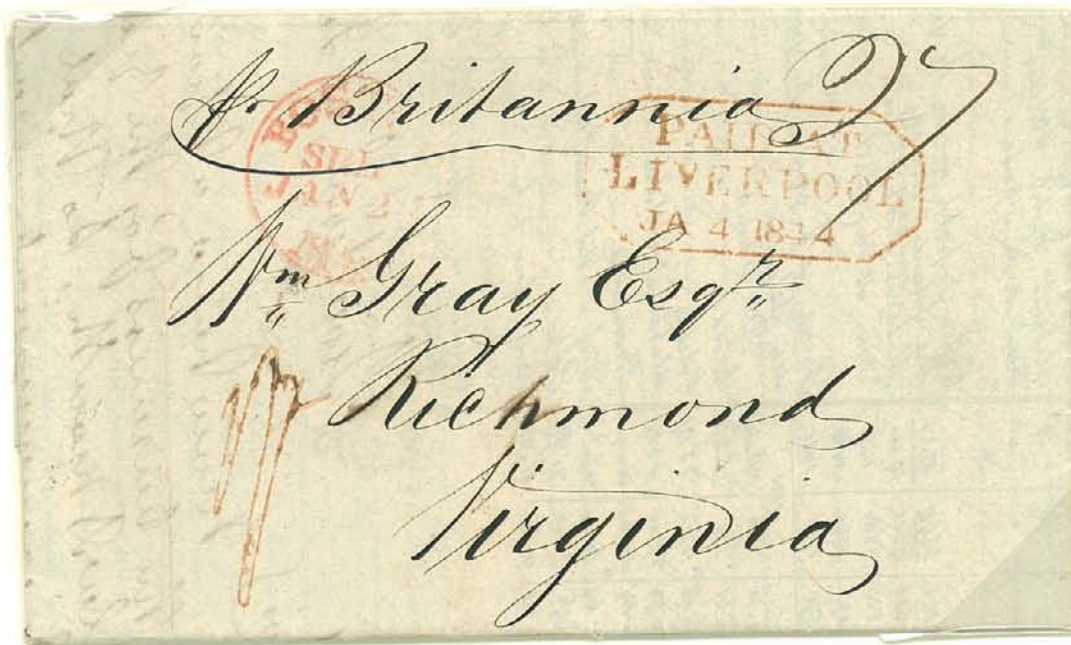 pr Britannia 27
PAID AT
LIVERPOOL
JA 4 1844
JAN 2
Wm Gray Esqr
Richmond
Virginia